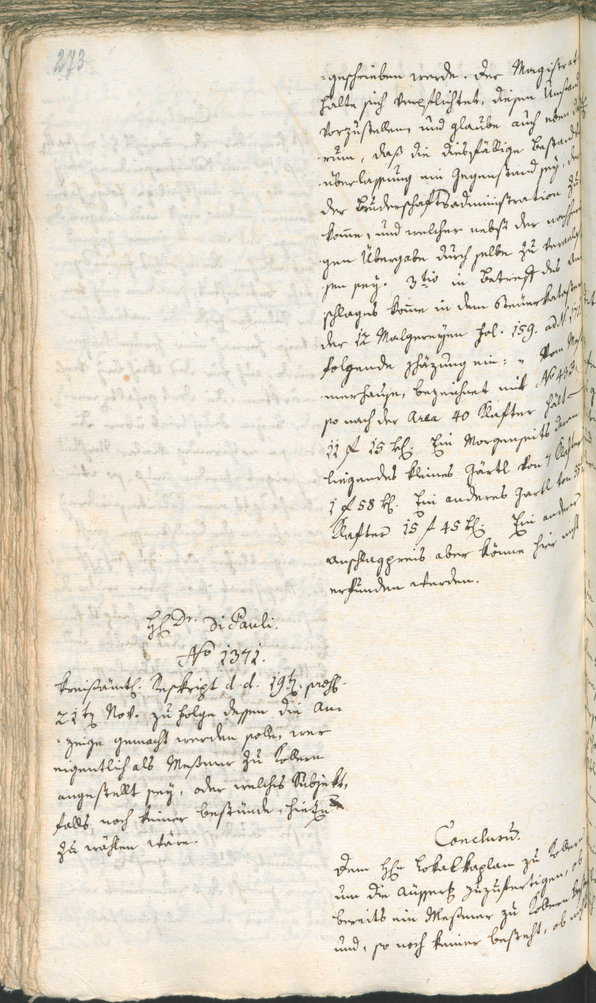 273
-geschrieben werde. Der Magistrat
halte sich verpflichtet, diesen Umstand
vorzustellen, und glaube auch eben
daß die diesfällige Bestands-
überlassung ein Gegenstand sey, der
der Bruderschaftsadministration zu
könne, und welcher nebst der
gen Übergabe durch selbe zu
sen sey. 3tio in Betreff des An
schlages komme in dem Steuerkataster
der 12 Malgereyen fol. 159. ad N.
folgende Schäzung ein: " Vom
merhause, bezeichnet mit No
so nach der Area 40 Klafter hält
11 f 15 kr. Ein Morgenseits daran
liegendes kleines Gärtl von 7 Klafter
1 f 58 kr. Ein anderes Gartl von
Klafter 15 f 45 kr. Ein anderer
Anschlagpreis aber könne hier nicht
erfunden werden.
H. Dr. Di Pauli.
No 1371.
Kreisämtl. Reskript d. d. 19t. praes.
21t Nov. zu Folge dessen die An-
-zeige gemacht werden solle, wer
eigentlich als Meßmer zu Kollern
angestellt sey, oder welches Subjekt,
falls noch keiner bestünde, hiezu
zu wählen wäre.
Conclusum.
Dem Hrn Lokalkaplan zu Koller
um die Äusserung zuzufertigen, ob
bereits ein Meßmer zu Kollern
und, so noch keiner besteht, ob